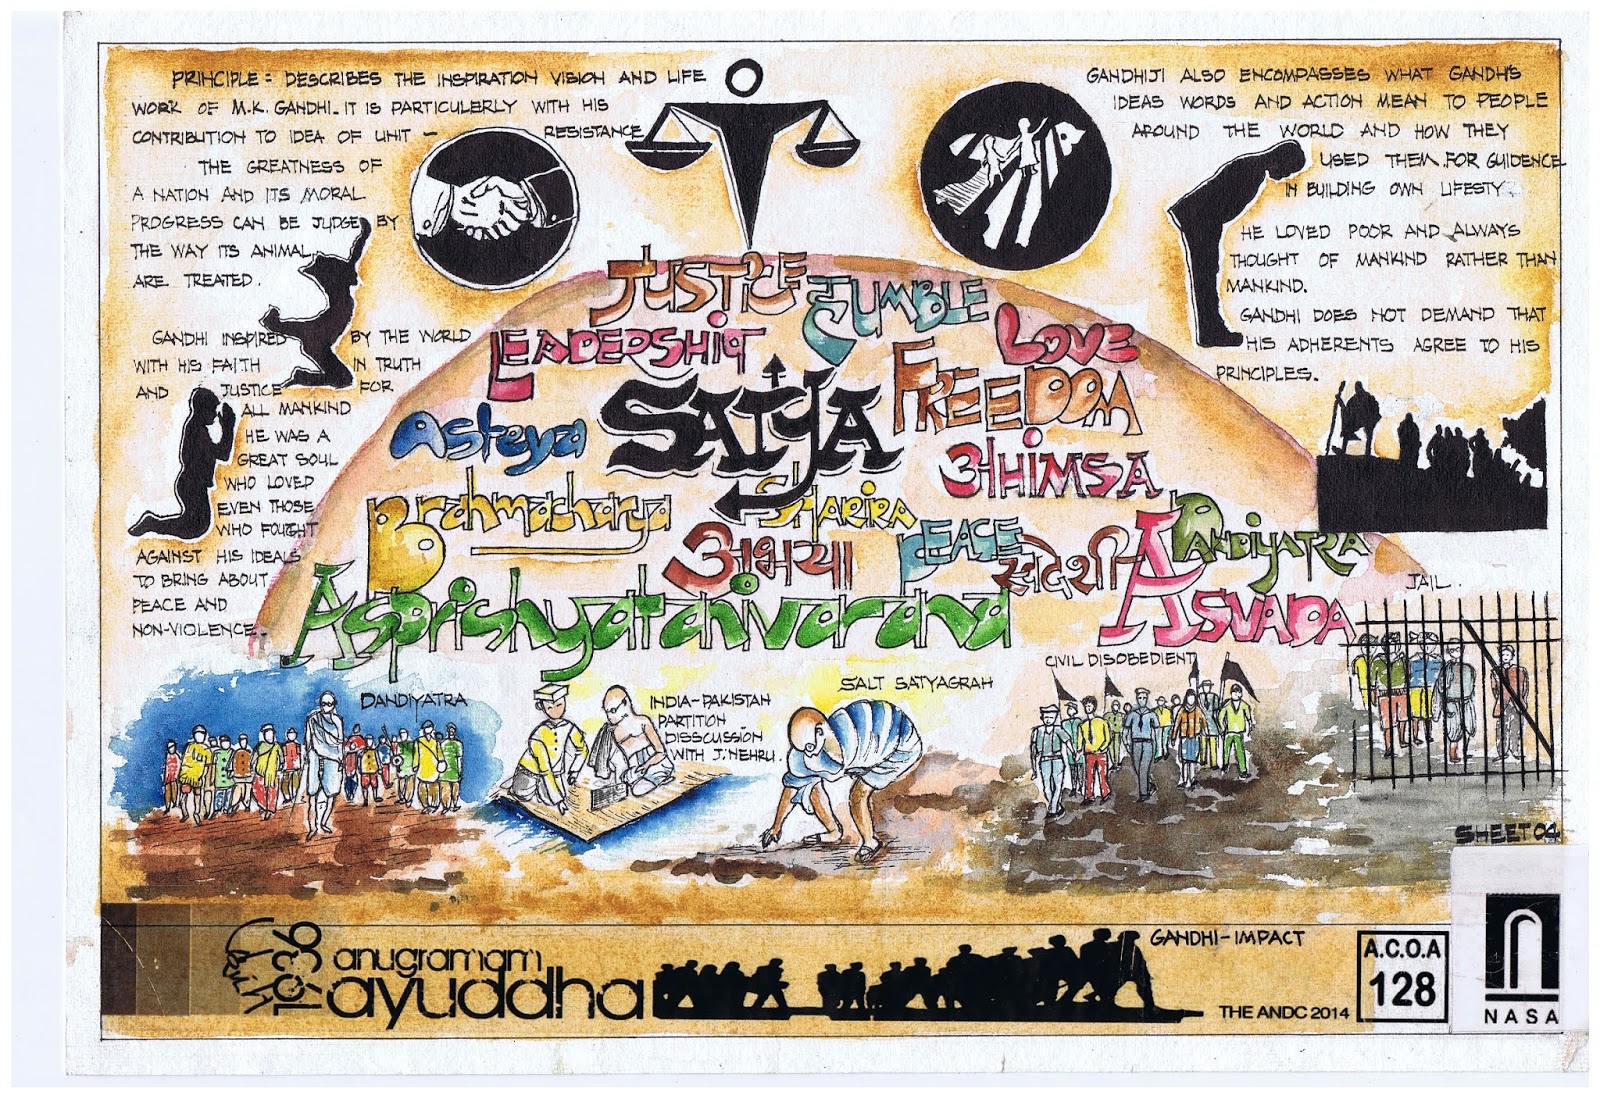 PRINCIPLE : DESCRIBES THE INSPIRATION VISION AND LIFE
WORK OF M.K. GANDHI. IT IS PARTICULERLY WITH HIS
CONTRIBUTION TO IDEA OF UNIT – RESISTANCE
THE GREATNESS OF
A NATION AND ITS MORAL
PROGRESS CAN BE JUDGE BY
THE WAY ITS ANIMAL
ARE TREATED.
GANDHI INSPIRED BY THE WORLD
WITH HIS FAITH IN TRUTH
AND JUSTICE FOR
ALL MANKIND
HE WAS A
GREAT SOUL
WHO LOVED
EVEN THOSE
WHO FOUGHT
AGAINST HIS IDEALS
TO BRING ABOUT
PEACE AND
NON-VIOLENCE.
GANDHIJI ALSO ENCOMPASSES WHAT GANDH'S
IDEAS WORDS AND ACTION MEAN TO PEOPLE
AROUND THE WORLD AND HOW THEY
USED THEM. FOR GUIDENCE
IN BUILDING OWN LIFESTY.
HE LOVED POOR AND ALWAYS
THOUGHT OF MANKIND RATHER THAN
MANKIND.
GANDHI DOES NOT DEMAND THAT
HIS ADHERENTS AGREE TO HIS
PRINCIPLES.
JUSTICE HUMBLE
LEADERSHIP LOVE
SATYA FREEDOM
Asteya अHIMSA
Brahmacharya SHARIRA
अभया PEACE स्वदेशी DANDIYATRA
Asprishyataivarava ASVADA
JAIL.
DANDIYATRA
INDIA-PAKISTAN
PARTITION
DISSCUSSION
WITH J.NEHRU.
SALT SATYAGRAH
CIVIL DISOBEDIENT
SHEET 04
anugramam
ayuddha
GANDHI-IMPACT
THE ANDC 2014
A.C.O.A
128
NASA